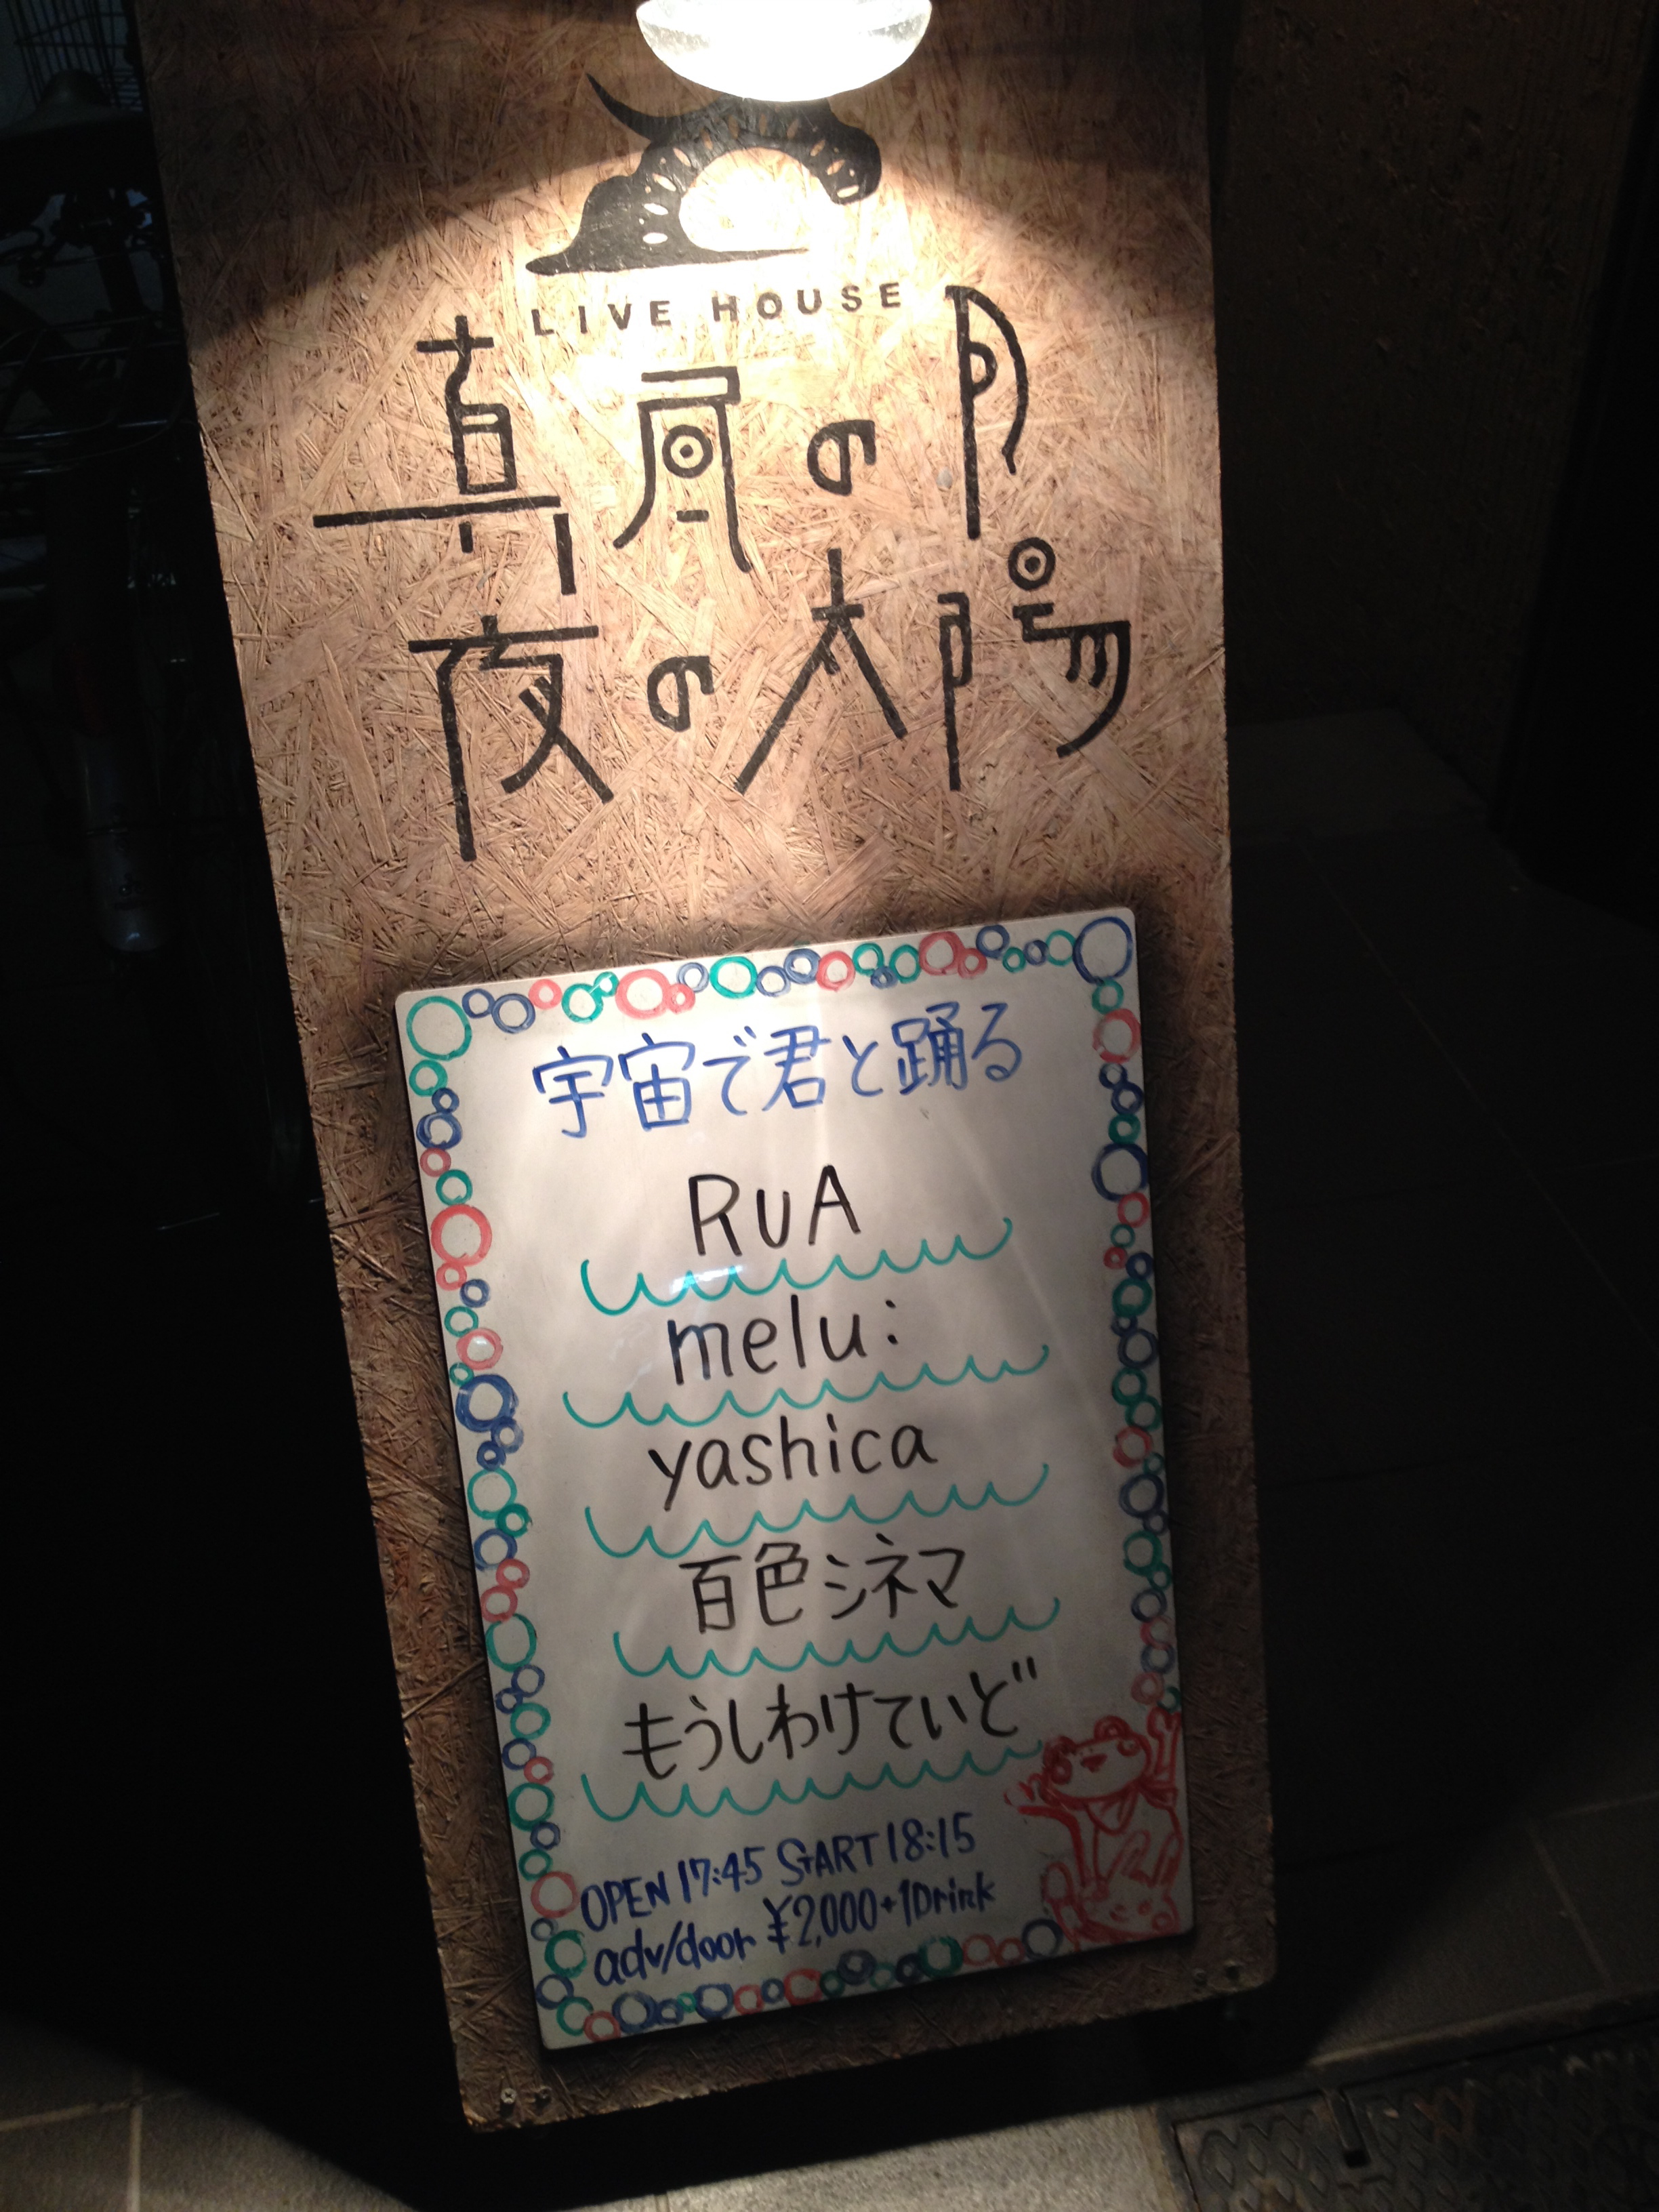 LIVE HOUSE
真昼の月
夜の太陽
宇宙で君と踊る
RUA
melu:
yashica
百色シネマ
もうしわけていど
OPEN 17:45 START 18:15
adv/door ¥2,000+1Drink